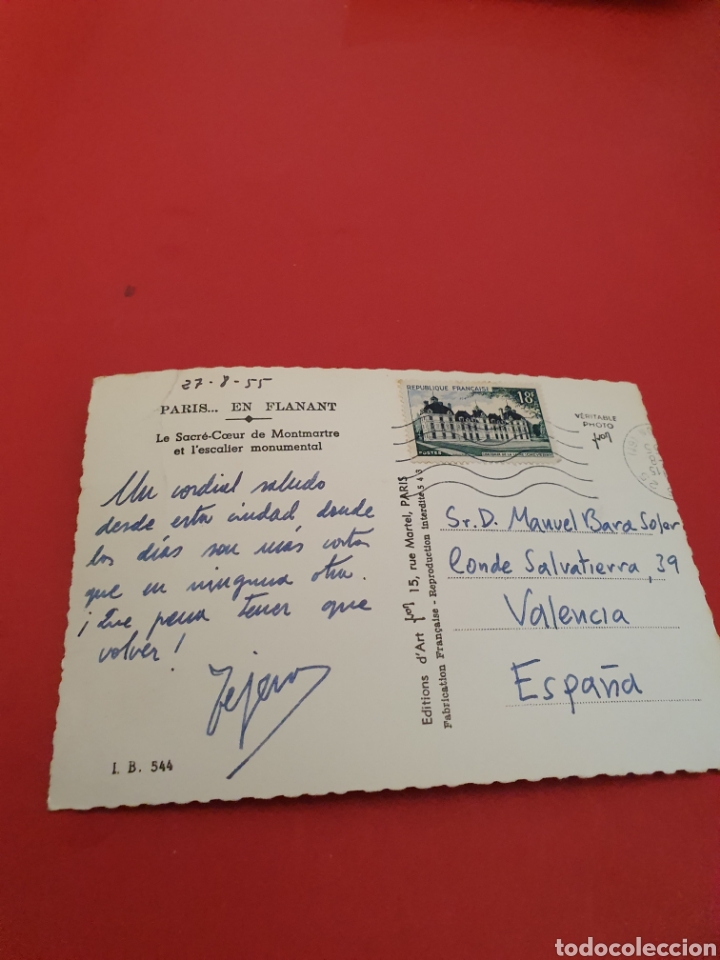 27-8-55
PARIS... EN FLANANT
Le Sacré-Cœur de Montmartre
et l'escalier monumental
Un cordial saludo
desde esta ciudad donde
los días son más cortos
que en ninguna otra.
¡Que pena tener que
volver!
Tejero
I. B. 544
Editions d'Art yvon 15, rue Martel, PARIS
Fabrication Française - Reproduction interdite
REPUBLIQUE FRANÇAISE
18F
POSTES
VÉRITABLE
PHOTO
yvon
Sr. D. Manuel Bara Soler
Conde Salvatierra, 39
Valencia
España
todocoleccion